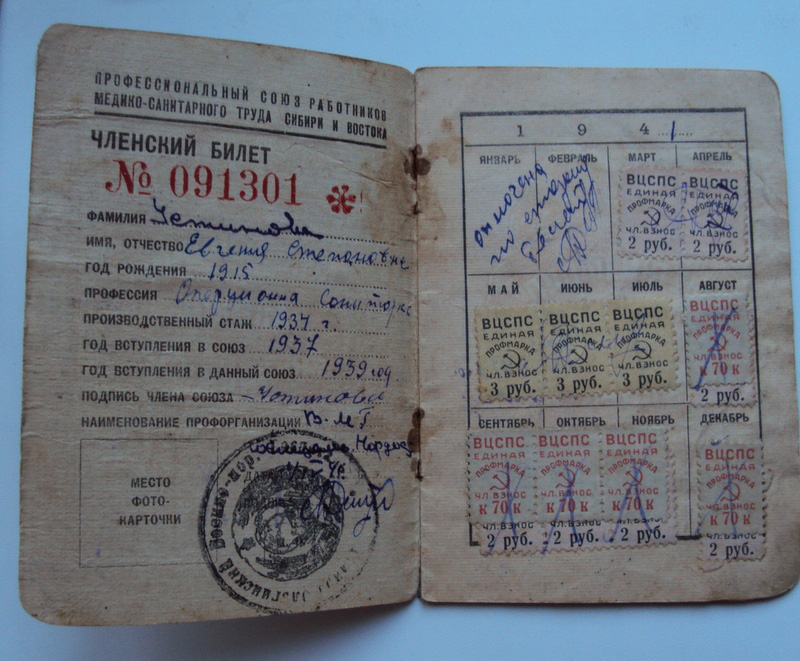 ПРОФЕССИОНАЛЬНЫЙ СОЮЗ РАБОТНИКОВ
МЕДИКО-САНИТАРНОГО ТРУДА СИБИРИ И ВОСТОКА
ЧЛЕНСКИЙ БИЛЕТ
№ 091301
ФАМИЛИЯ Устинова
ИМЯ, ОТЧЕСТВО Евгения Степановна
ГОД РОЖДЕНИЯ 1915
ПРОФЕССИЯ Операционна санитарка
ПРОИЗВОДСТВЕННЫЙ СТАЖ 1937 г.
ГОД ВСТУПЛЕНИЯ В СОЮЗ 1937
ГОД ВСТУПЛЕНИЯ В ДАННЫЙ СОЮЗ 1939 год
ПОДПИСЬ ЧЛЕНА СОЮЗА Устинова
НАИМЕНОВАНИЕ ПРОФОРГАНИЗАЦИИ
МЕСТО
ФОТО-
КАРТОЧКИ
1 9 4 1
ЯНВАРЬ ФЕВРАЛЬ МАРТ АПРЕЛЬ
по старому
билету
ВЦСПС ВЦСПС
ЕДИНАЯ ЕДИНАЯ
ПРОФМАРКА ПРОФМАРКА
ЧЛ. ВЗНОС ЧЛ. ВЗНОС
2 руб. 2 руб.
МАЙ ИЮНЬ ИЮЛЬ АВГУСТ
ВЦСПС ВЦСПС ВЦСПС ВЦСПС
ЕДИНАЯ ЕДИНАЯ ЕДИНАЯ ЕДИНАЯ
ПРОФМАРКА ПРОФМАРКА ПРОФМАРКА ПРОФМАРКА
ЧЛ. ВЗНОС ЧЛ. ВЗНОС ЧЛ. ВЗНОС ЧЛ. ВЗНОС
3 руб. 3 руб. 3 руб. к 70 к
2 руб.
СЕНТЯБРЬ ОКТЯБРЬ НОЯБРЬ ДЕКАБРЬ
ВЦСПС ВЦСПС ВЦСПС ВЦСПС
ЕДИНАЯ ЕДИНАЯ ЕДИНАЯ ЕДИНАЯ
ПРОФМАРКА ПРОФМАРКА ПРОФМАРКА ПРОФМАРКА
ЧЛ. ВЗНОС ЧЛ. ВЗНОС ЧЛ. ВЗНОС ЧЛ. ВЗНОС
к 70 к к 70 к к 70 к к 70 к
2 руб. 2 руб. 2 руб. 2 руб.